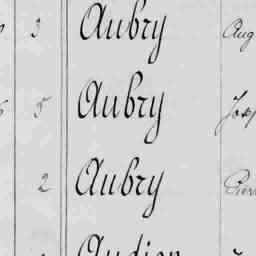 3 Aubry Aug
5 Aubry Jos
2 Aubry Pier
Audion